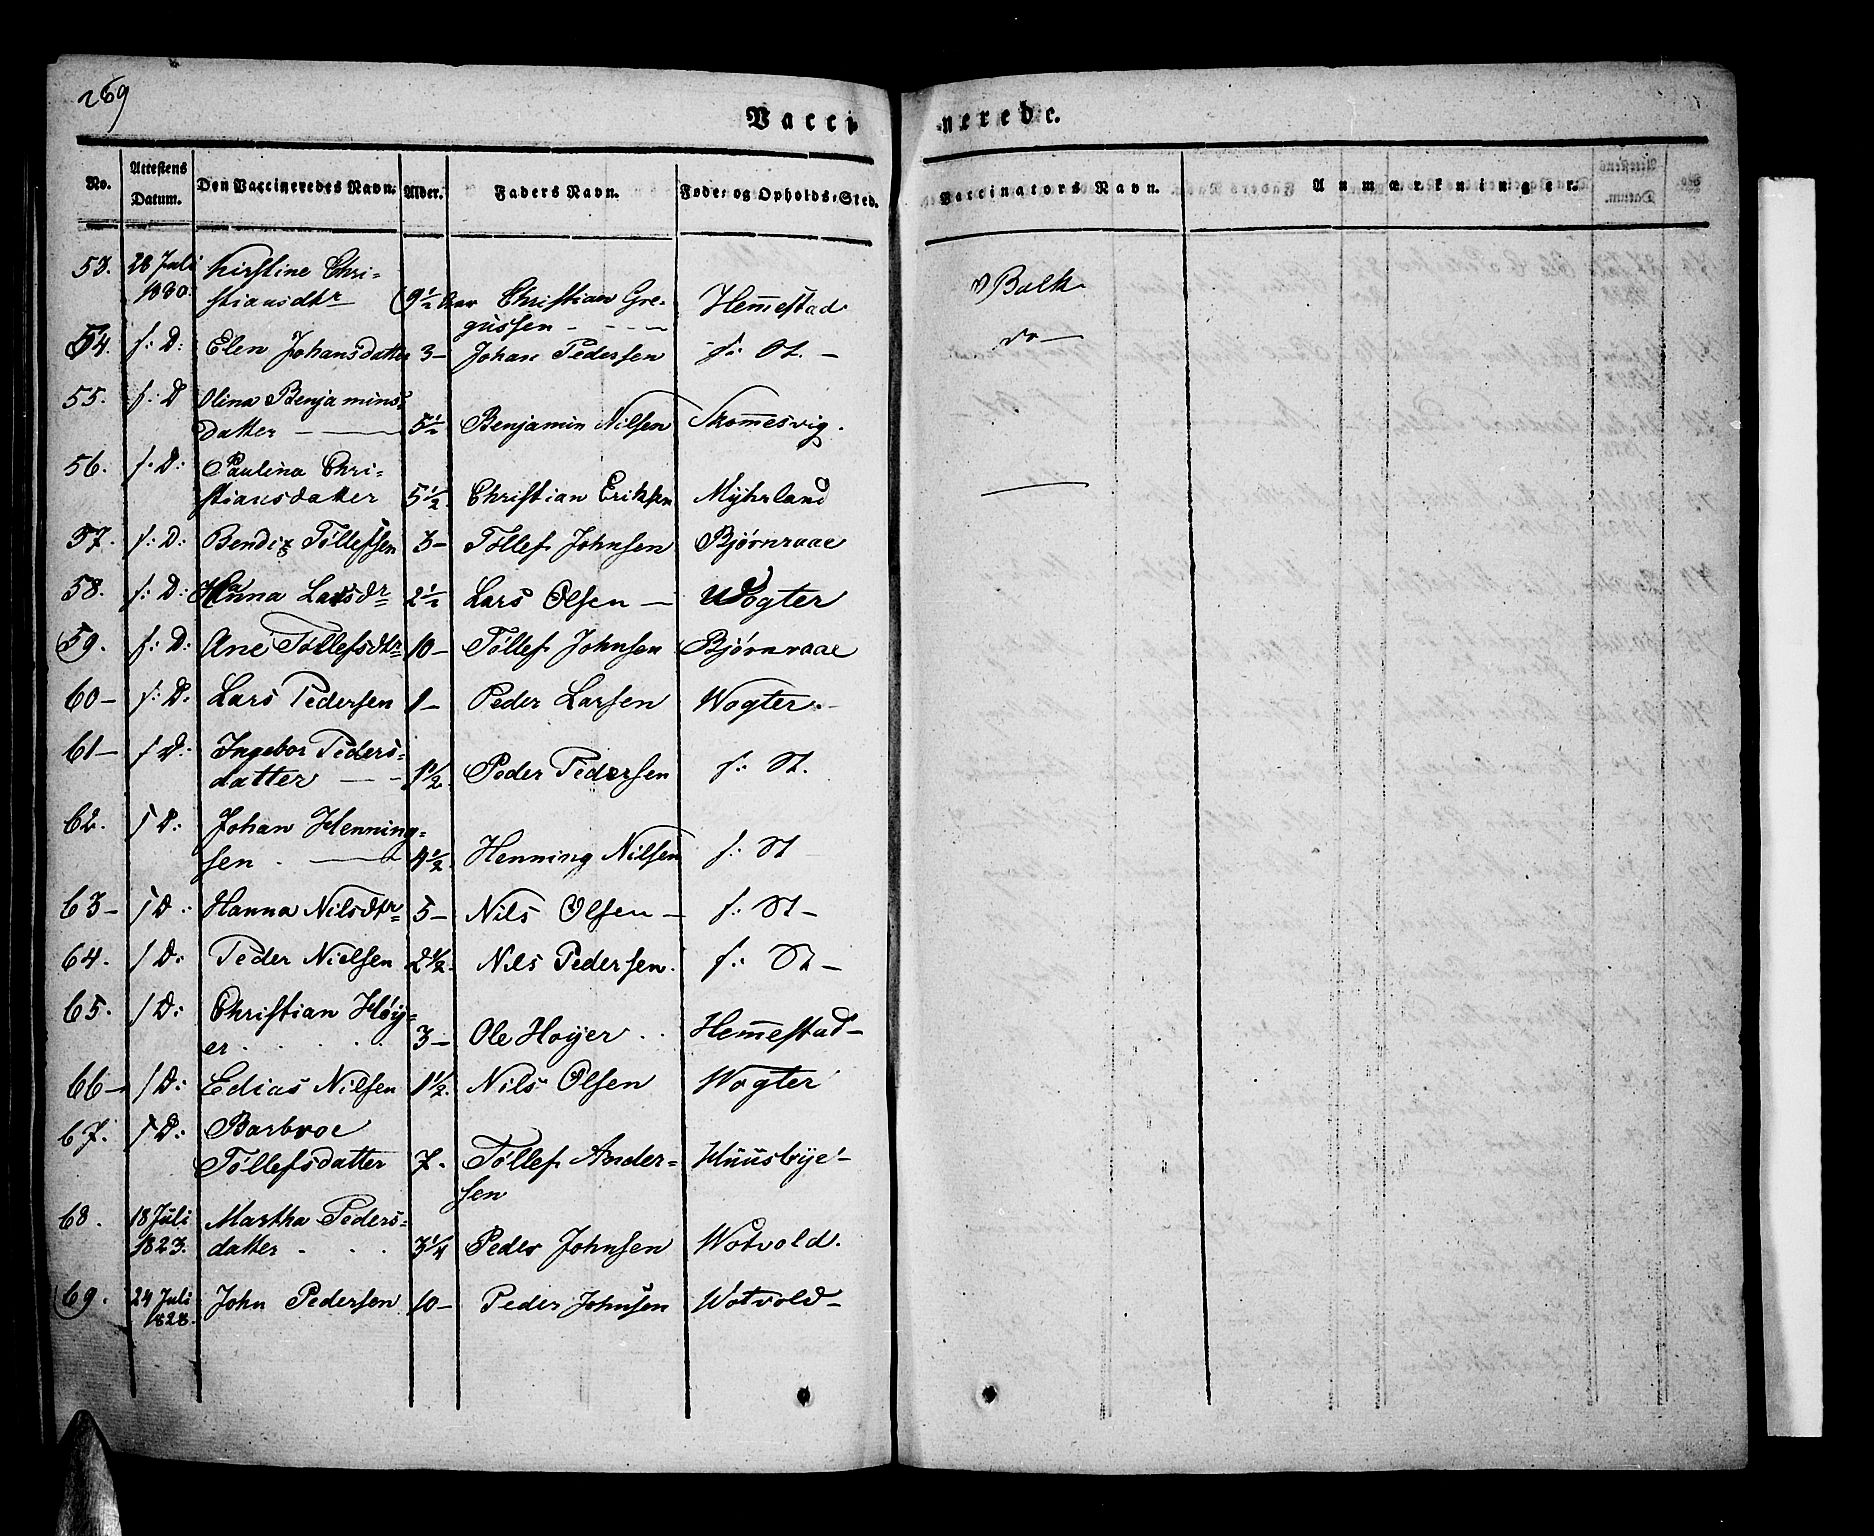 269
Vaccinerede.
No. Attestens Datum. Den Vaccineredes Navn. Alder. Faders Navn. Føde- og Opholds-Sted. Vaccinators Navn. Anmærkninger.
53. 28 Juli Kirstine Chri-
1830. stiansdtr 9½ Aar Christian Gre- Hem̅estad Balk
gussen - - -
54. f: D: Elen Johansdatter 3- Johan Pedersen f: St. - do -
55. f: D Olina Benjamins-
datter - 5½ Benjamin Nilsen Skom̅esvig.
56. f. D: Paulina Chri-
stiansdatter 5½. Christian Eriksen Myhrland
57. f: D: Bendix Tøllefsen 3- Tøllef Johnsen Bjørnraae
58. f: D: Hanna Larsdr 2½ Lars Olsen - Wogter
59. f: D: Ane Tøllefsdtr 10- Tøllef Johnsen Bjørnraae
60- f: D. Lars Pedersen 1- Peder Larsen Wogter.
61- f D: Ingebor Peders-
datter - - 1½. Peder Pedersen f: St.
62. f D: Johan Henning-
sen . - 4½. Henning Nilsen f: St
63- f D: Hanna Nilsdtr 5- Nils Olsen - f: St-
64. f D: Peder Nielsen 2½. Nils Pedersen. f: St-
65. f D: Christian Høy-
er . . . 3- Ole Hoyer . . Hem̅estad-
66- f D: Edias Nilsen 1½. Nils Olsen Wogter
67. f D: Barbroe
Tøllefsdatter 7. Tøllef Ander- Huusbye-
sen
68. 18 Juli Martha Peders-
1823. datter . . . 3¼ Peder Johnsen Wotvold.
69. 24 Juli John Pedersen 10- Peder Johnsen Wotvold-
1828.